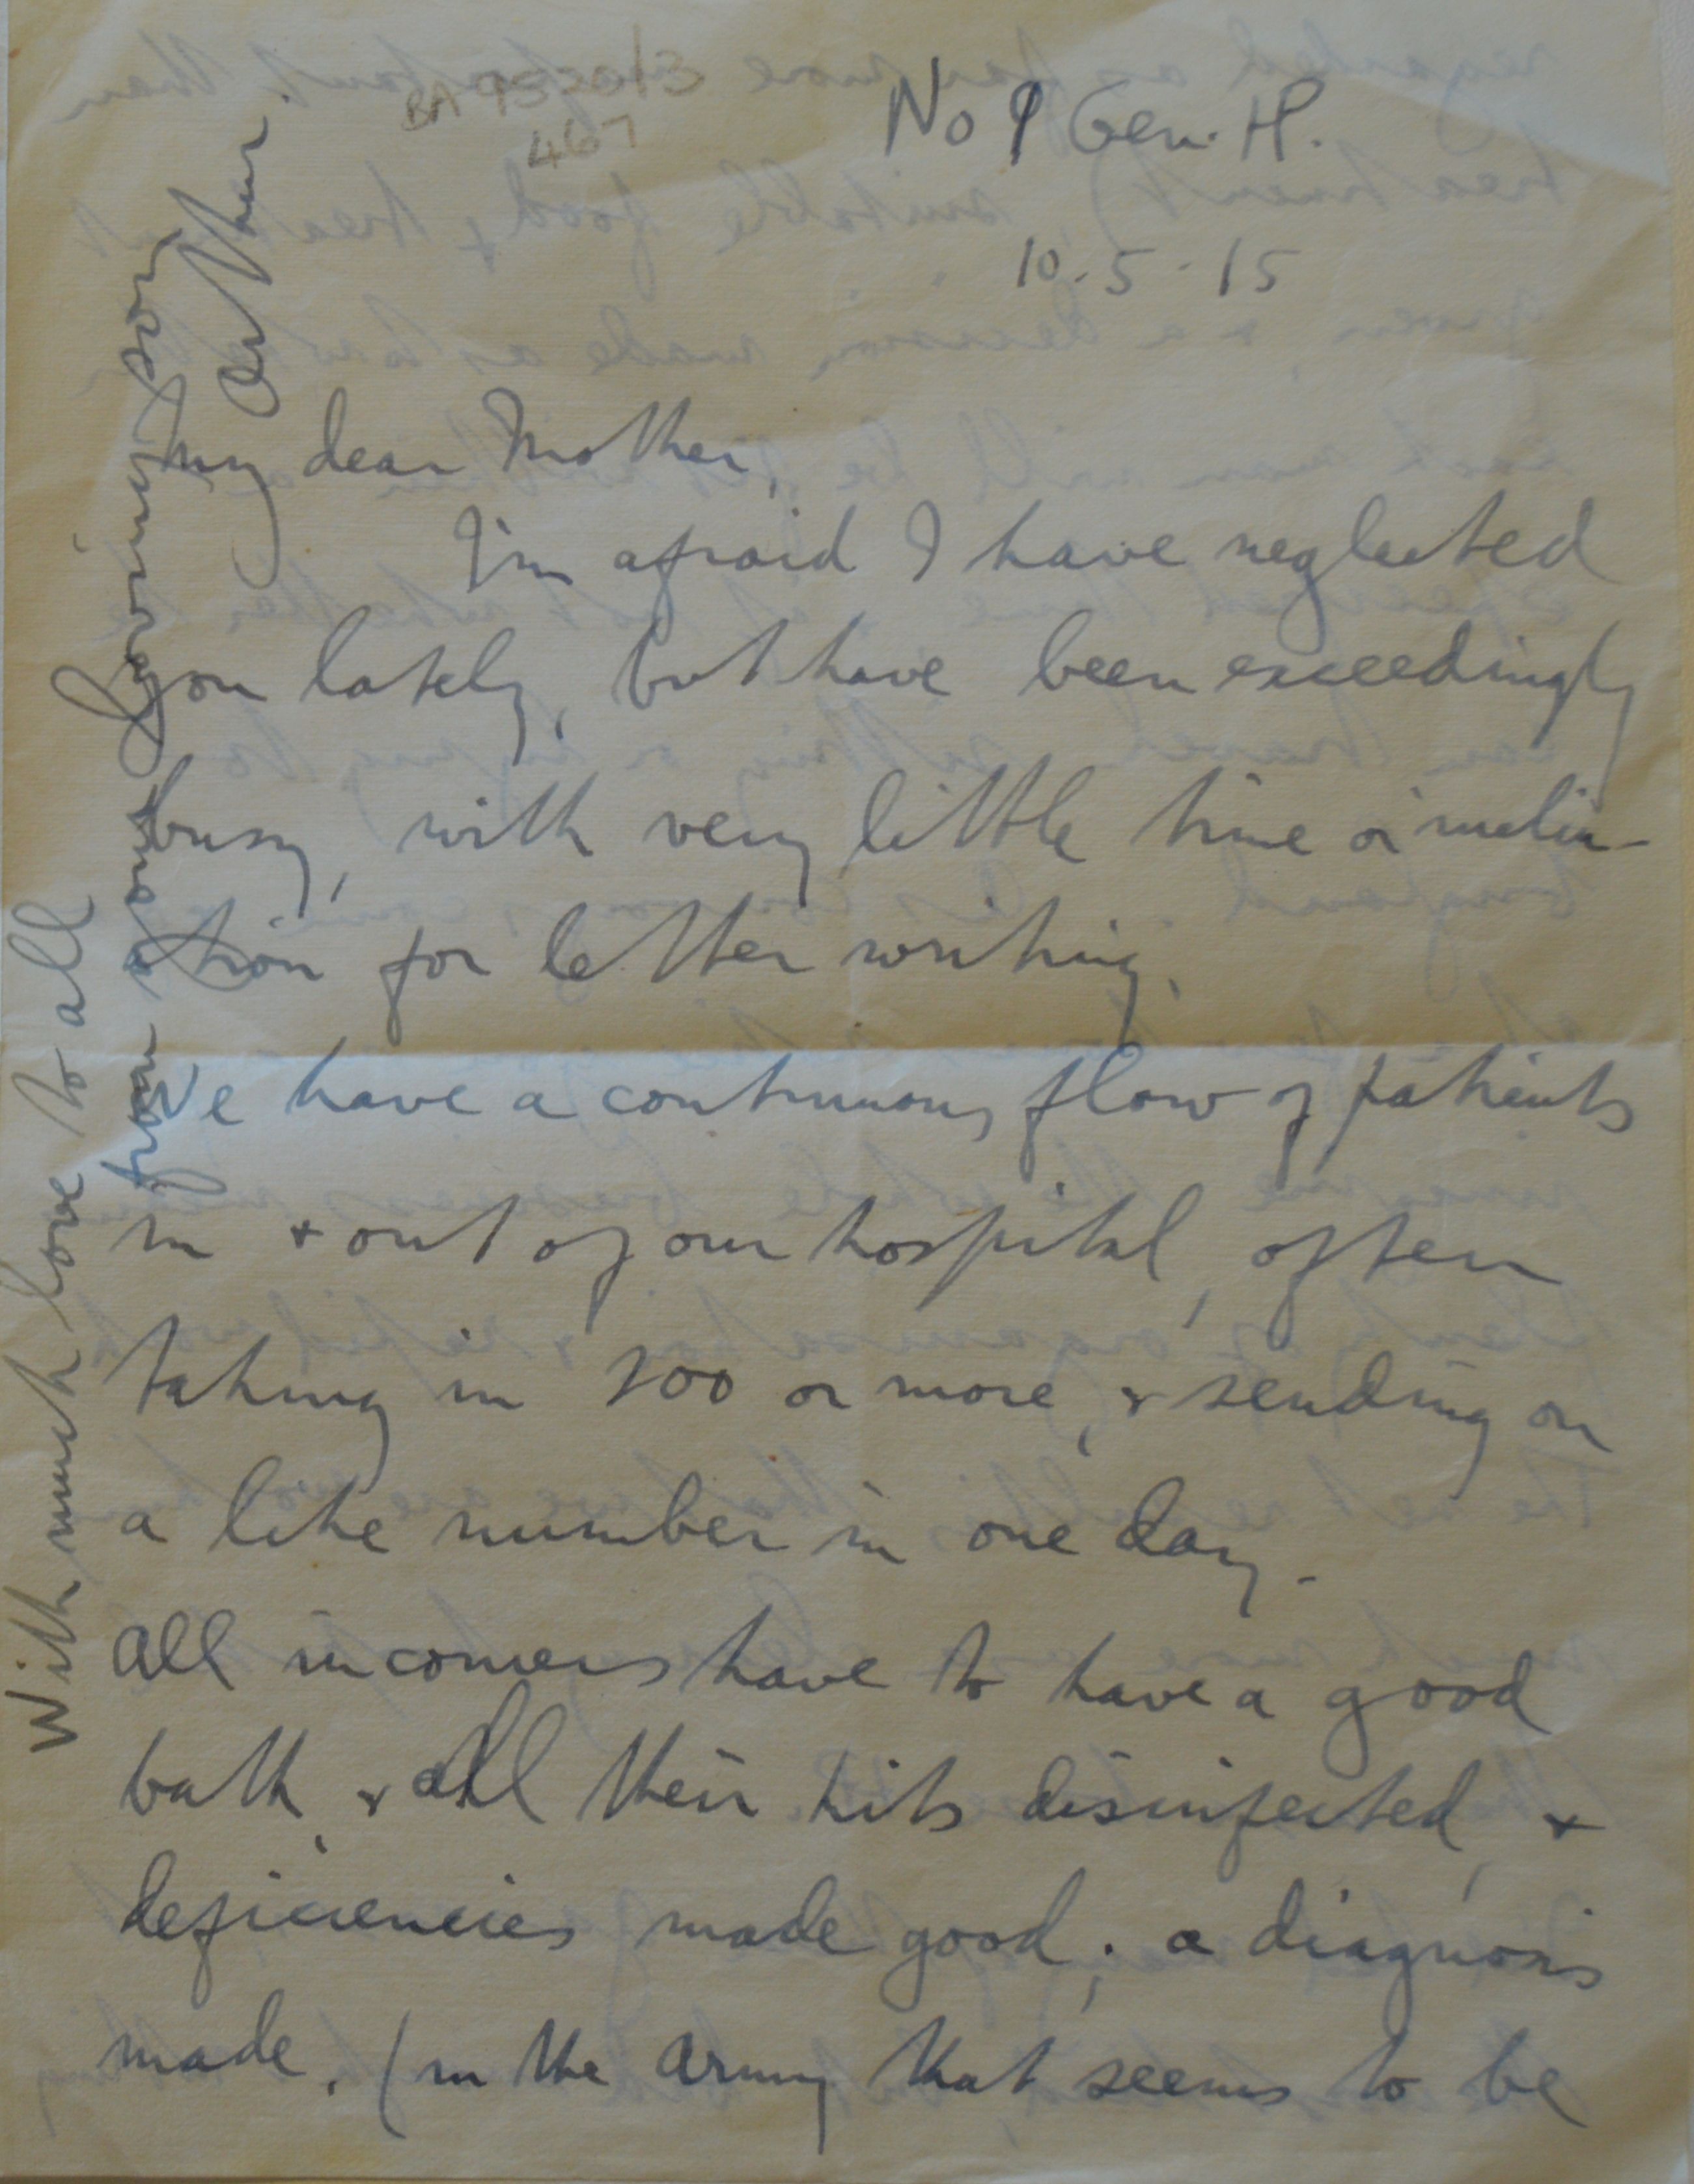 BA 9520/3
467
No 9 Gen. H.
10.5.15
My dear Mother,
I'm afraid I have neglected
you lately, but have been exceedingly
busy, with very little time or inclin-
ation for letter writing.
We have a continuous flow of patients
in + out of our hospital, often
taking in 200 or more, + sending on
a like number in one day.
All incomers have to have a good
bath, + all their kits disinfected, +
deficiencies made good; a diagnosis
made, (in the Army that seems to be
With much love to all
from your loving son
Arthur.